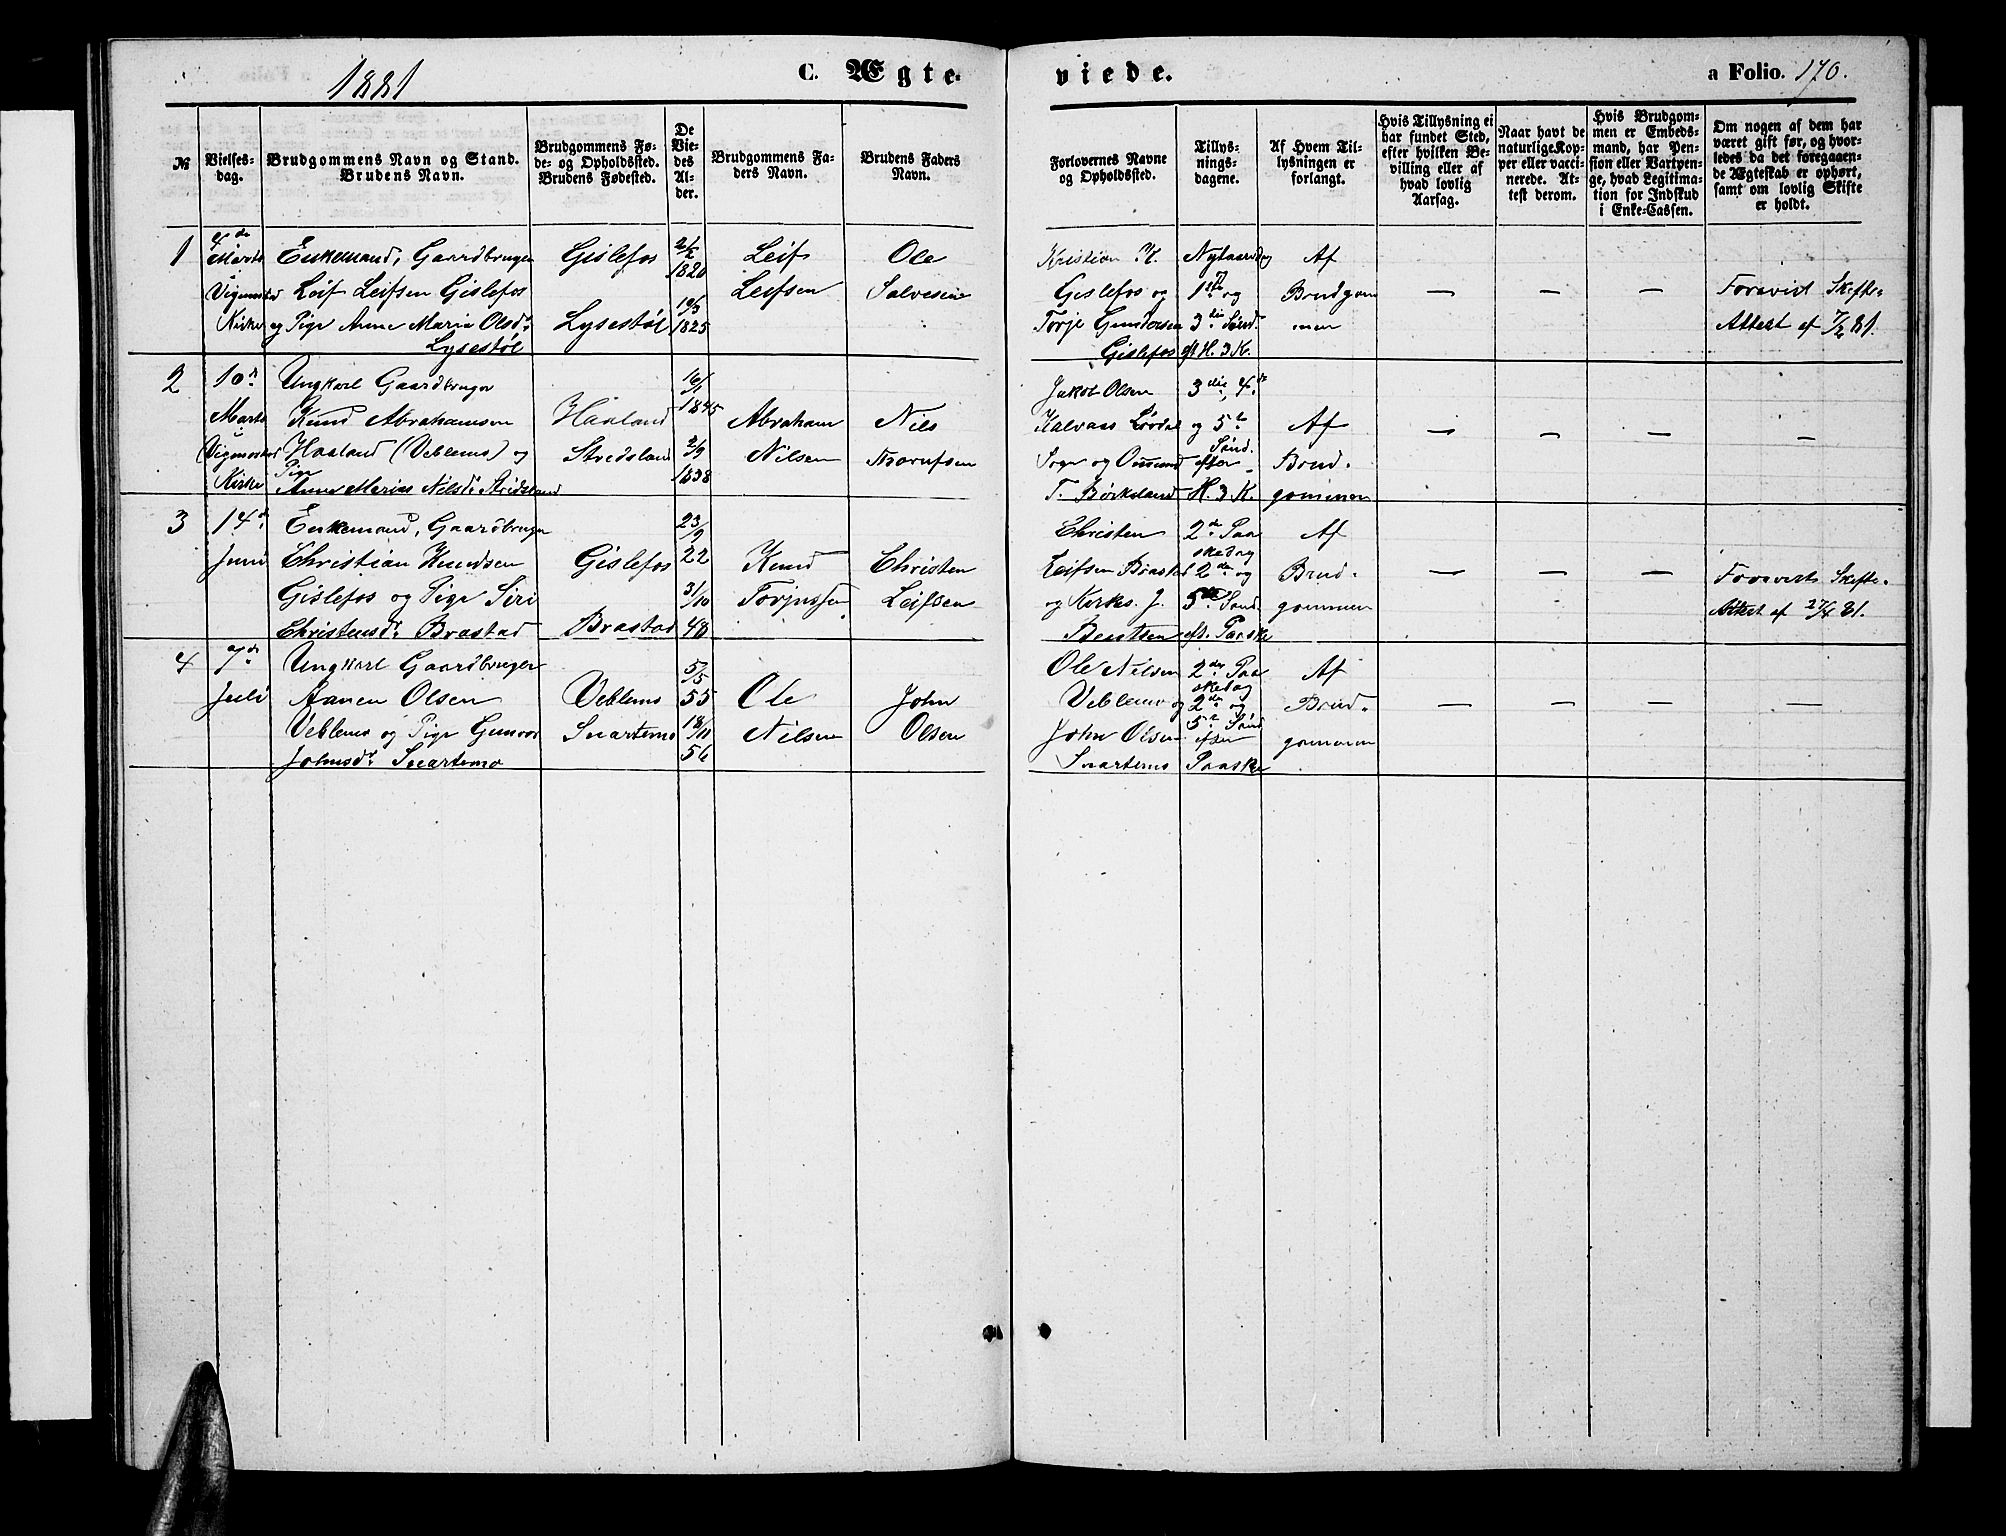 1881
C. Ægte-
viede.
a Folio. 170.
№
Vielses-
dag.
Brudgommens Navn og Stand.
Brudens Navn.
Brudgommens Fø-
de- og Opholdssted.
Brudens Fødested.
De
Vie-
des
Al-
der.
Brudgommens Fa-
ders Navn.
Brudens Faders
Navn.
Forlovernes Navne
og Opholdssted.
Tillys-
nings-
dagene.
Af Hvem Til-
lysningen er
forlangt.
Hvis Tillysning ei
har fundet Sted,
efter hvilken Be-
villing eller af
hvad lovlig
Aarsag.
Naar havt de
naturlige Kop-
per eller vacci-
nerede. At-
test derom.
Hvis Brudgom-
men er Embeds-
mand, har Pen-
sion eller Vartpen-
ge, hvad Legitima-
tion for Indskud
i Enke-Cassen.
Om nogen af dem har
været gift før, og hvor-
ledes da det foregaaen-
de Ægteskab er ophørt,
samt om lovlig Skifte
er holdt.
1
4de
Marts
Vigmostad
Kirke
Enkemand, Gaardbruger
Leif Leifsen Gislefos
og Pige Anne Maria Olsd.
Lysestøl
Gislefos
Lysestøl
2/2
1820
10/3
1825
Leif
Leifsen
Ole
Salvesen
Kristian K.
Gislefos og
Torje Gundersen
Gislefos
Nytaarsdag
1ste og
3die Sønd.
eft H. 3 K.
Af
Brudgom
men
— — —
Forevist Skifte-
Attest af 7/2 81.
2
10de
Marts
Vigmostad
Kirke
Ungkarl Gaardbruger
Knud Abrahamsen
Haaland (Veblemo) og
Pige
Anne Marias Nilsd. Stridsland
Haaland
Stridsland
16/1
1845
2/9
1838
Abraham
Nilsen
Nils
Jakob Olsen
og Omund
T. Birkeland
3die, 4de
og 5te
Sønd.
efter
H. 3 K.
Af
Brud-
gommen
— — — —
3
14de
Juni
Enkemand, Gaardbruger
Christian Knudsen
Gislefos og Pige Siri
Christensd. Brastad
Gislefos
Brastad
23/9
22
31/10
48
Knud
Torjussen
Christen
Leifsen
Christen
Leifsen Brastad
og Kirkes. J.
Bentsen
2den Paa
skedag
2den og
5te Sønd.
eft. Paaske
Af
Brud-
gommen
— — —
Forevist Skifte-
Attest af 27/4 81.
4
7de
Juli
Ungkarl Gaardbruger
Aanen Olsen
Veblemo og Pige Gunvor
Johnsd. Snartemo
Veblemo
Snartemo
5/5
55
18/11
56
Ole
Nilsen
John
Olsen
Ole Nilsen
Veblemo og
John Olsen
Snartemo
2den Paa
skedag
2den og
5te Sønd
efter
Paaske
Af
Brud-
gommen
— — — —